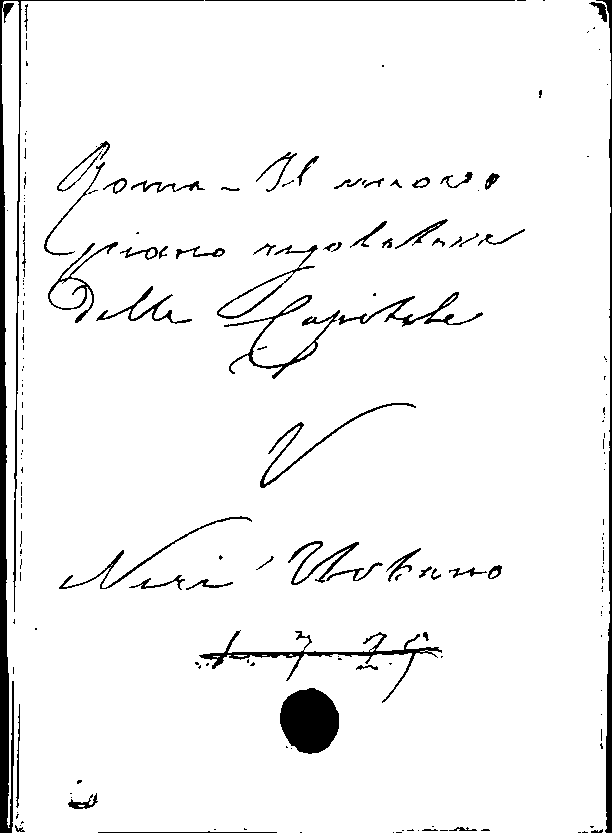 Roma - Il nuovo
piano regolatore
della Capitale
V
Neri' Urbano
1 7 25